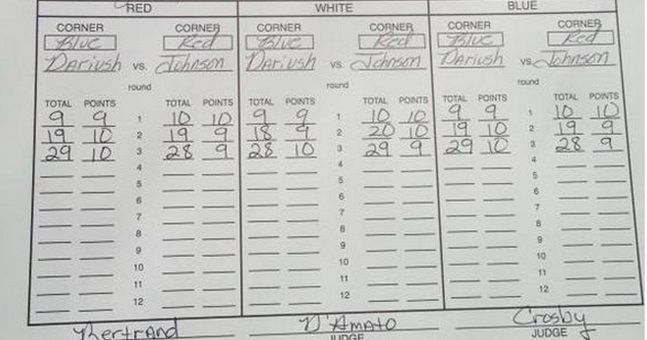 RED WHITE BLUE
CORNER CORNER CORNER CORNER CORNER CORNER
Blue Red Blue Red Blue Red
Dariush vs. Johnson Dariush vs. Johnson Dariush vs. Johnson
round round round
TOTAL POINTS TOTAL POINTS TOTAL POINTS TOTAL POINTS TOTAL POINTS TOTAL POINTS
9 9 1 10 10 9 9 1 10 10 9 9 1 10 10
19 10 2 19 9 18 9 2 20 10 19 10 2 19 9
29 10 3 28 9 28 10 3 29 9 29 10 3 28 9
4 4 4
5 5 5
6 6 6
7 7 7
8 8 8
9 9 9
10 10 10
11 11 11
12 12 12
Bertrand D'Amato Crosby
JUDGE JUDGE